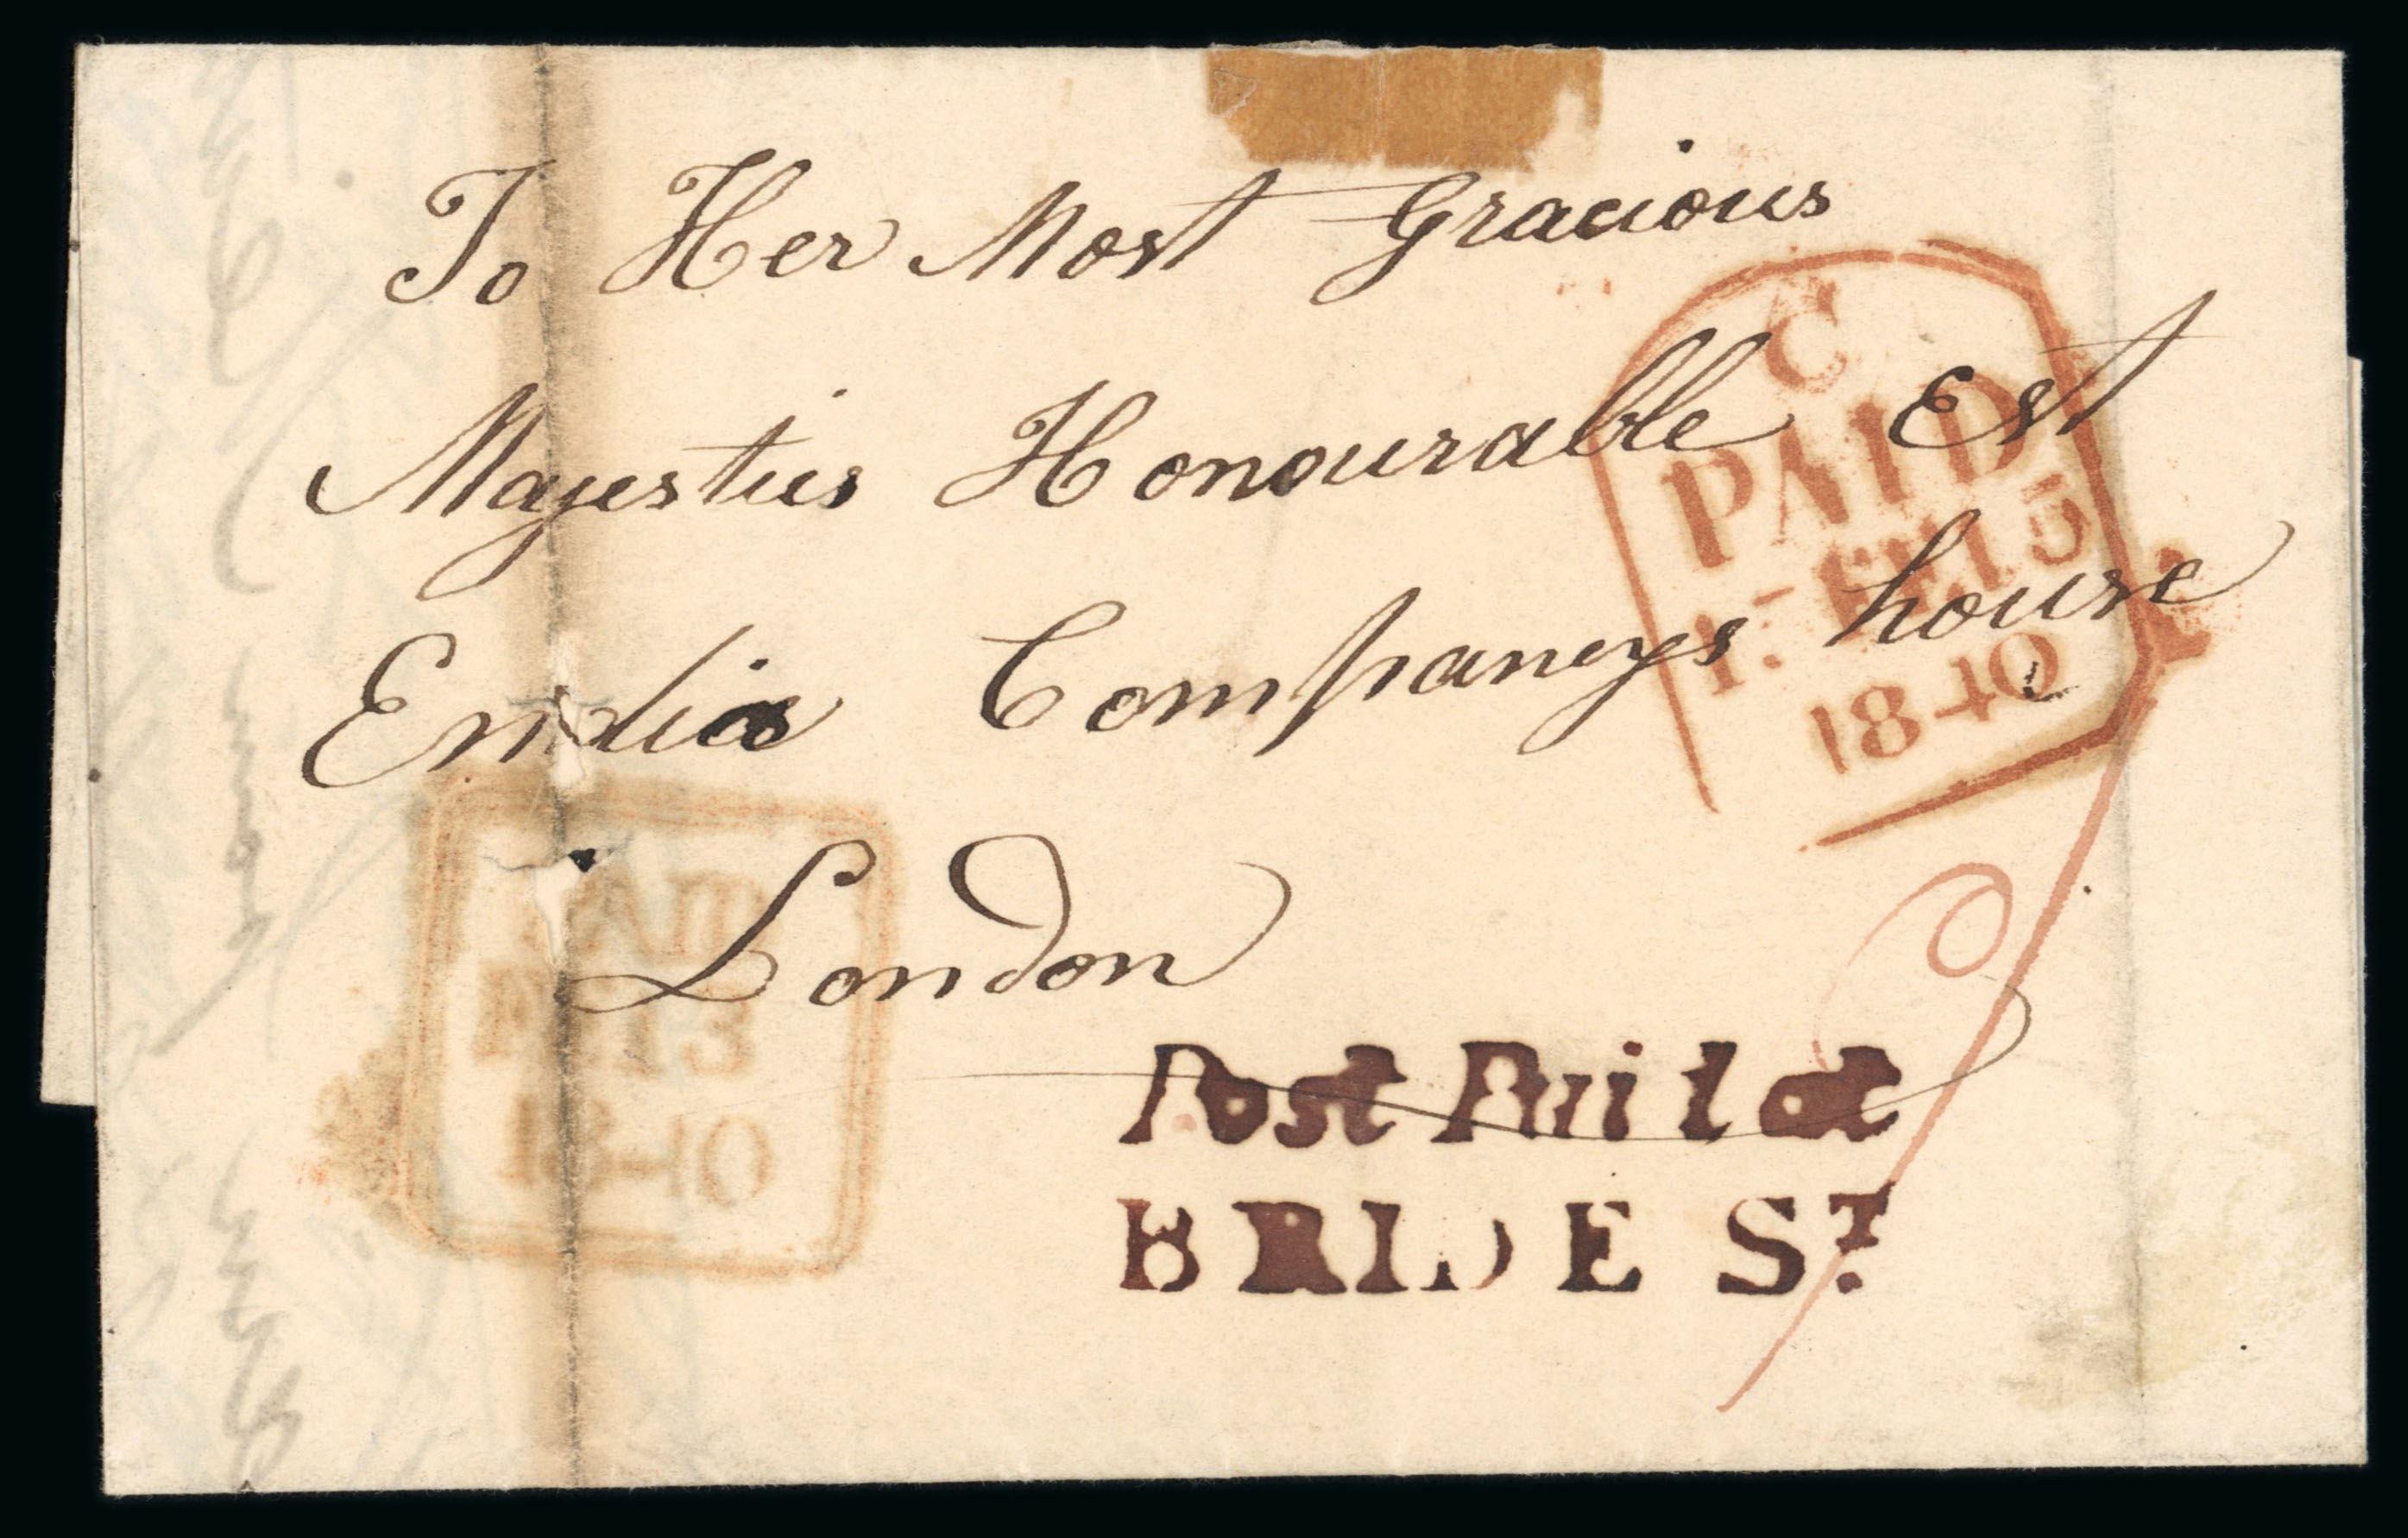 To Her Most Gracious
Majesties Honourable Est
Endia Companeys house
London
C
PAID
15
1840
AM
13
1840
Post Paid at
BRIDE ST.